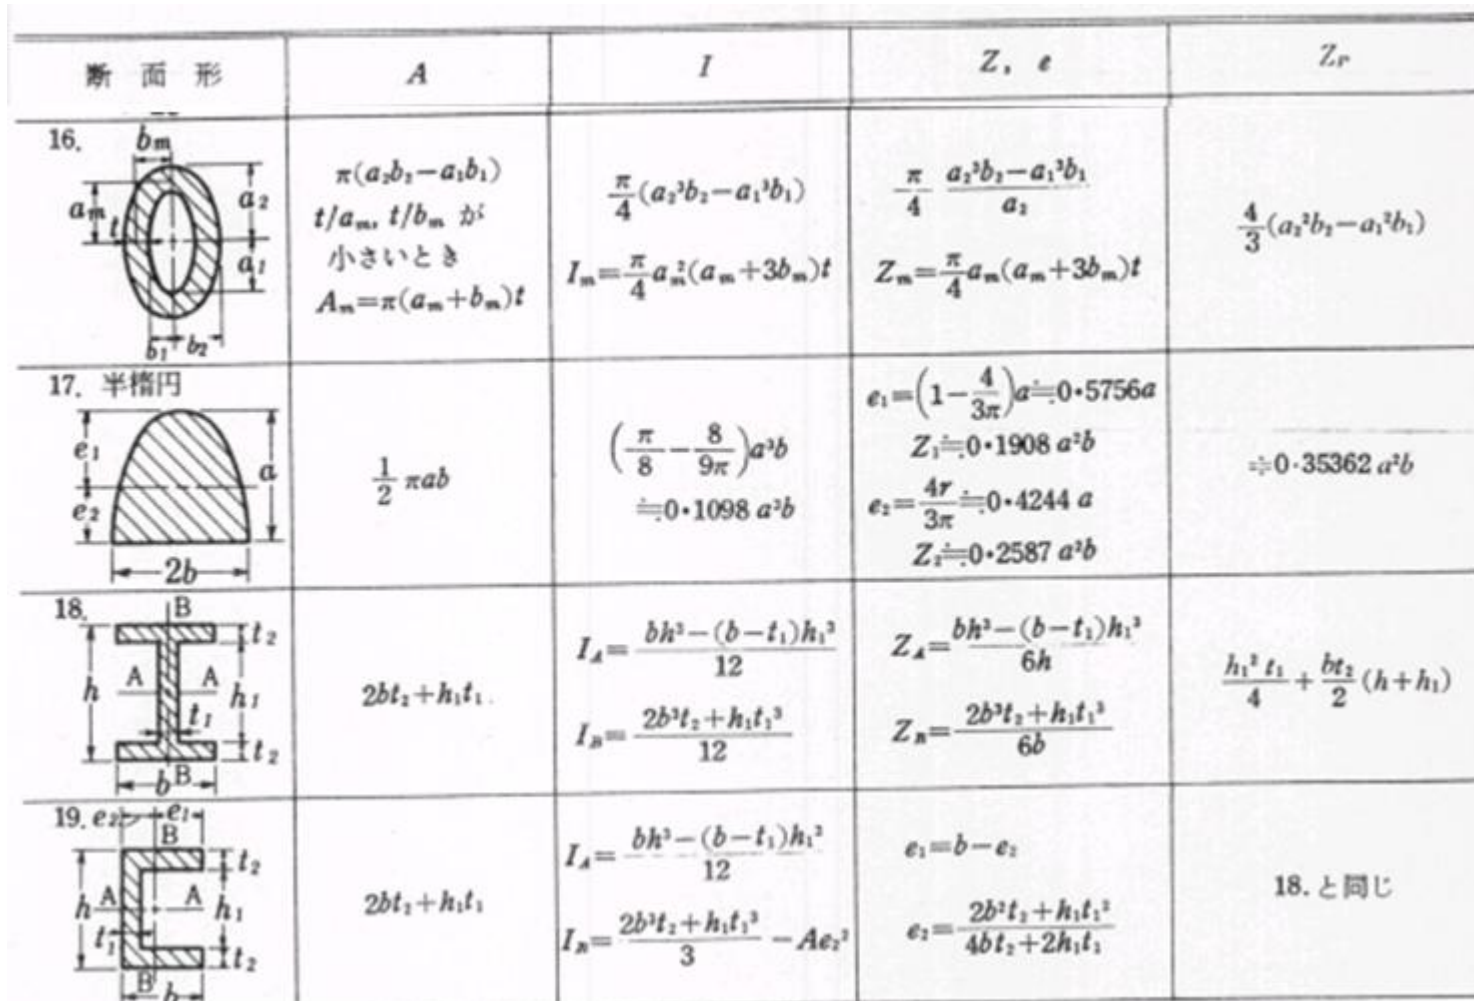 断面形 A I Z, e Zp
16.
bm
am
t
a₂
a₁
b₁ b₂
π(a₂b₂−a₁b₁)
t/am, t/bm が
小さいとき
Am=π(am+bm)t
π/4 (a₂³b₂−a₁³b₁)
Im=π/4 am²(am+3bm)t
π/4 (a₂³b₂−a₁³b₁)/a₂
Zm=π/4 am(am+3bm)t
4/3 (a₂²b₂−a₁²b₁)
17. 半楕円
e₁
e₂
a
2b
1/2 πab
(π/8 − 8/9π)a³b
≒0·1098 a³b
e₁=(1−4/3π)a≒0·5756a
Z₁≒0·1908 a²b
e₂=4r/3π≒0·4244 a
Z₂≒0·2587 a²b
≒0·35362 a²b
18.
B
t₂
h A A h₁
t₁
t₂
b B
2bt₂+h₁t₁
I_A=(bh³−(b−t₁)h₁³)/12
I_B=(2b³t₂+h₁t₁³)/12
Z_A=(bh³−(b−t₁)h₁³)/6h
Z_B=(2b³t₂+h₁t₁³)/6b
h₁²t₁/4 + bt₂/2 (h+h₁)
19. e₂ e₁
B
t₂
h A A h₁
t₁
t₂
B b
2bt₂+h₁t₁
I_A=(bh³−(b−t₁)h₁³)/12
I_B=(2b³t₂+h₁t₁³)/3 − Ae₂²
e₁=b−e₂
e₂=(2b²t₂+h₁t₁²)/(4bt₂+2h₁t₁)
18.と同じ